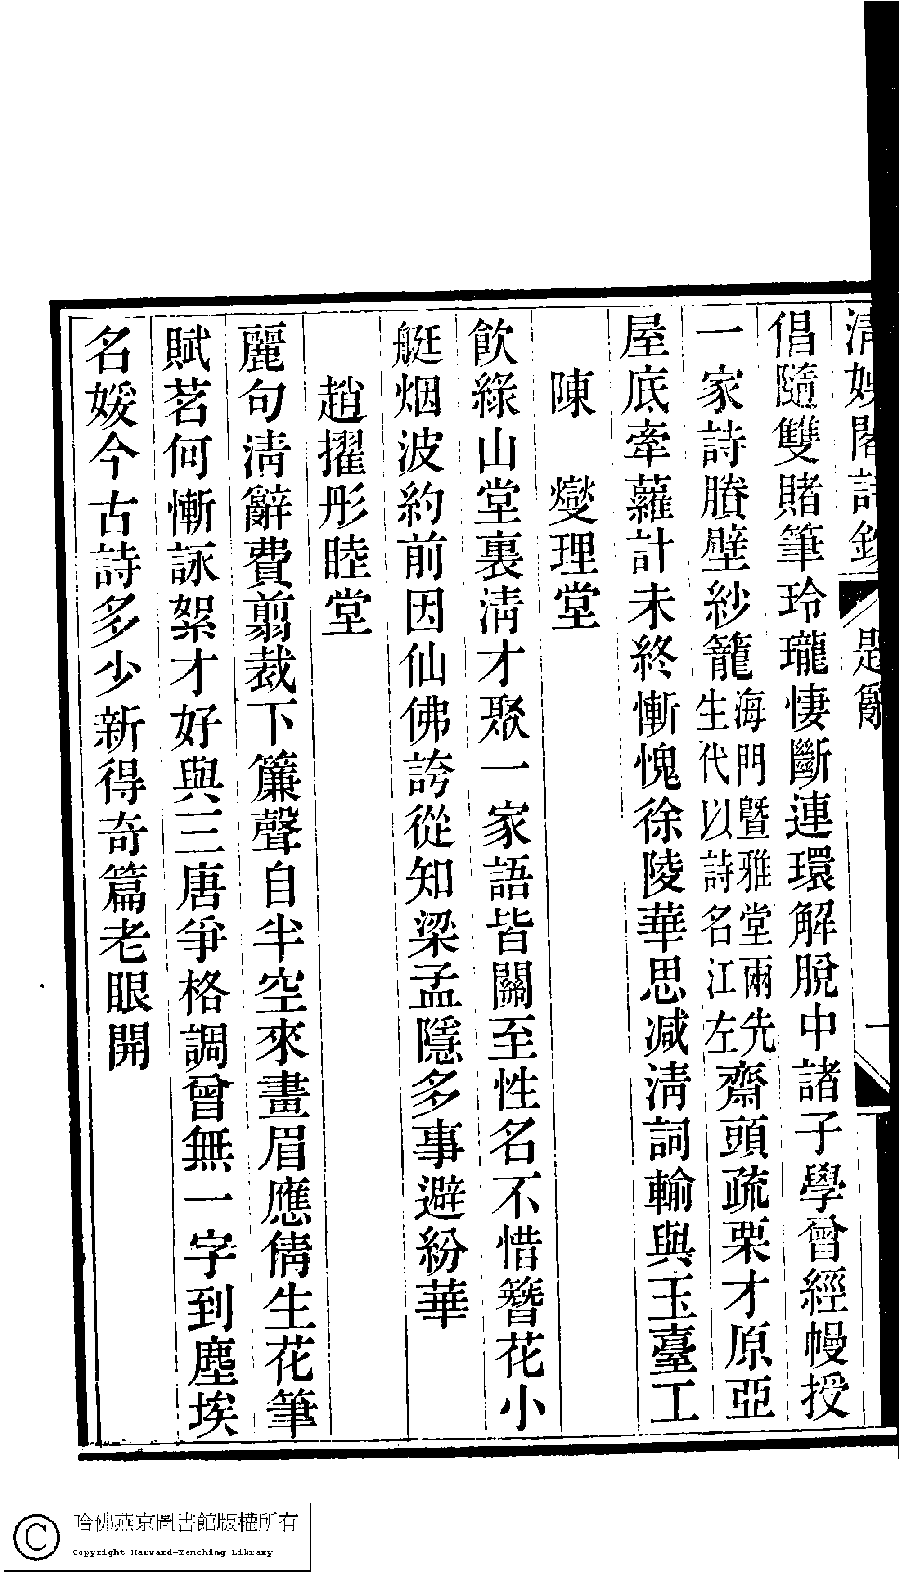 清娛閣詩鈔 題辭 一
倡隨雙賭筆玲瓏悽斷連環解脫中諸子學曾經幔授
一家詩賸壁紗籠海門暨雅堂兩先生代以詩名江左齋頭疏栗才原亞
屋底牽蘿計未終慚愧徐陵華思減清詞輸與玉臺工
陳　燮理堂
飲綠山堂裏清才聚一家語皆關至性名不惜簪花小
艇烟波約前因仙佛誇從知梁孟隱多事避紛華
趙擢彤睦堂
麗句清辭費翦裁下簾聲自半空來畫眉應倩生花筆
賦茗何慚詠絮才好與三唐爭格調曾無一字到塵埃
名媛今古詩多少新得奇篇老眼開
哈佛燕京圖書館版權所有
Copyright Harvard-Yenching Library